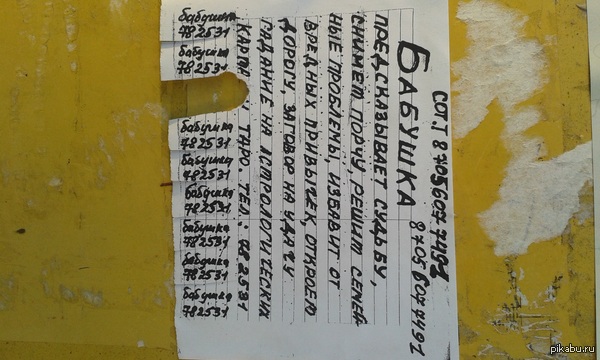 СОТ.Т 87056077491
БАБУШКА 87056077491
ПРЕДСКАЗЫВАЕТ СУДЬБУ,
СНИМЕТ ПОРЧУ, РЕШИТ СЕМЕЙ
НЫЕ ПРОБЛЕМЫ, ИЗБАВИТ ОТ
ВРЕДНЫХ ПРИВЫЧЕК, ОТКРОЕТ
ДОРОГУ, ЗАГОВОР НА УДАЧУ
ГАДАНИЕ НА АСТРОЛОГИЧЕСКИХ
ТАРО. ТЕЛ: 782531
бабушка
782531
бабушка
782531
бабушка
782531
бабушка
782531
бабушка
782531
бабушка
782531
бабушка
782531
бабушка
782531
pikabu.ru